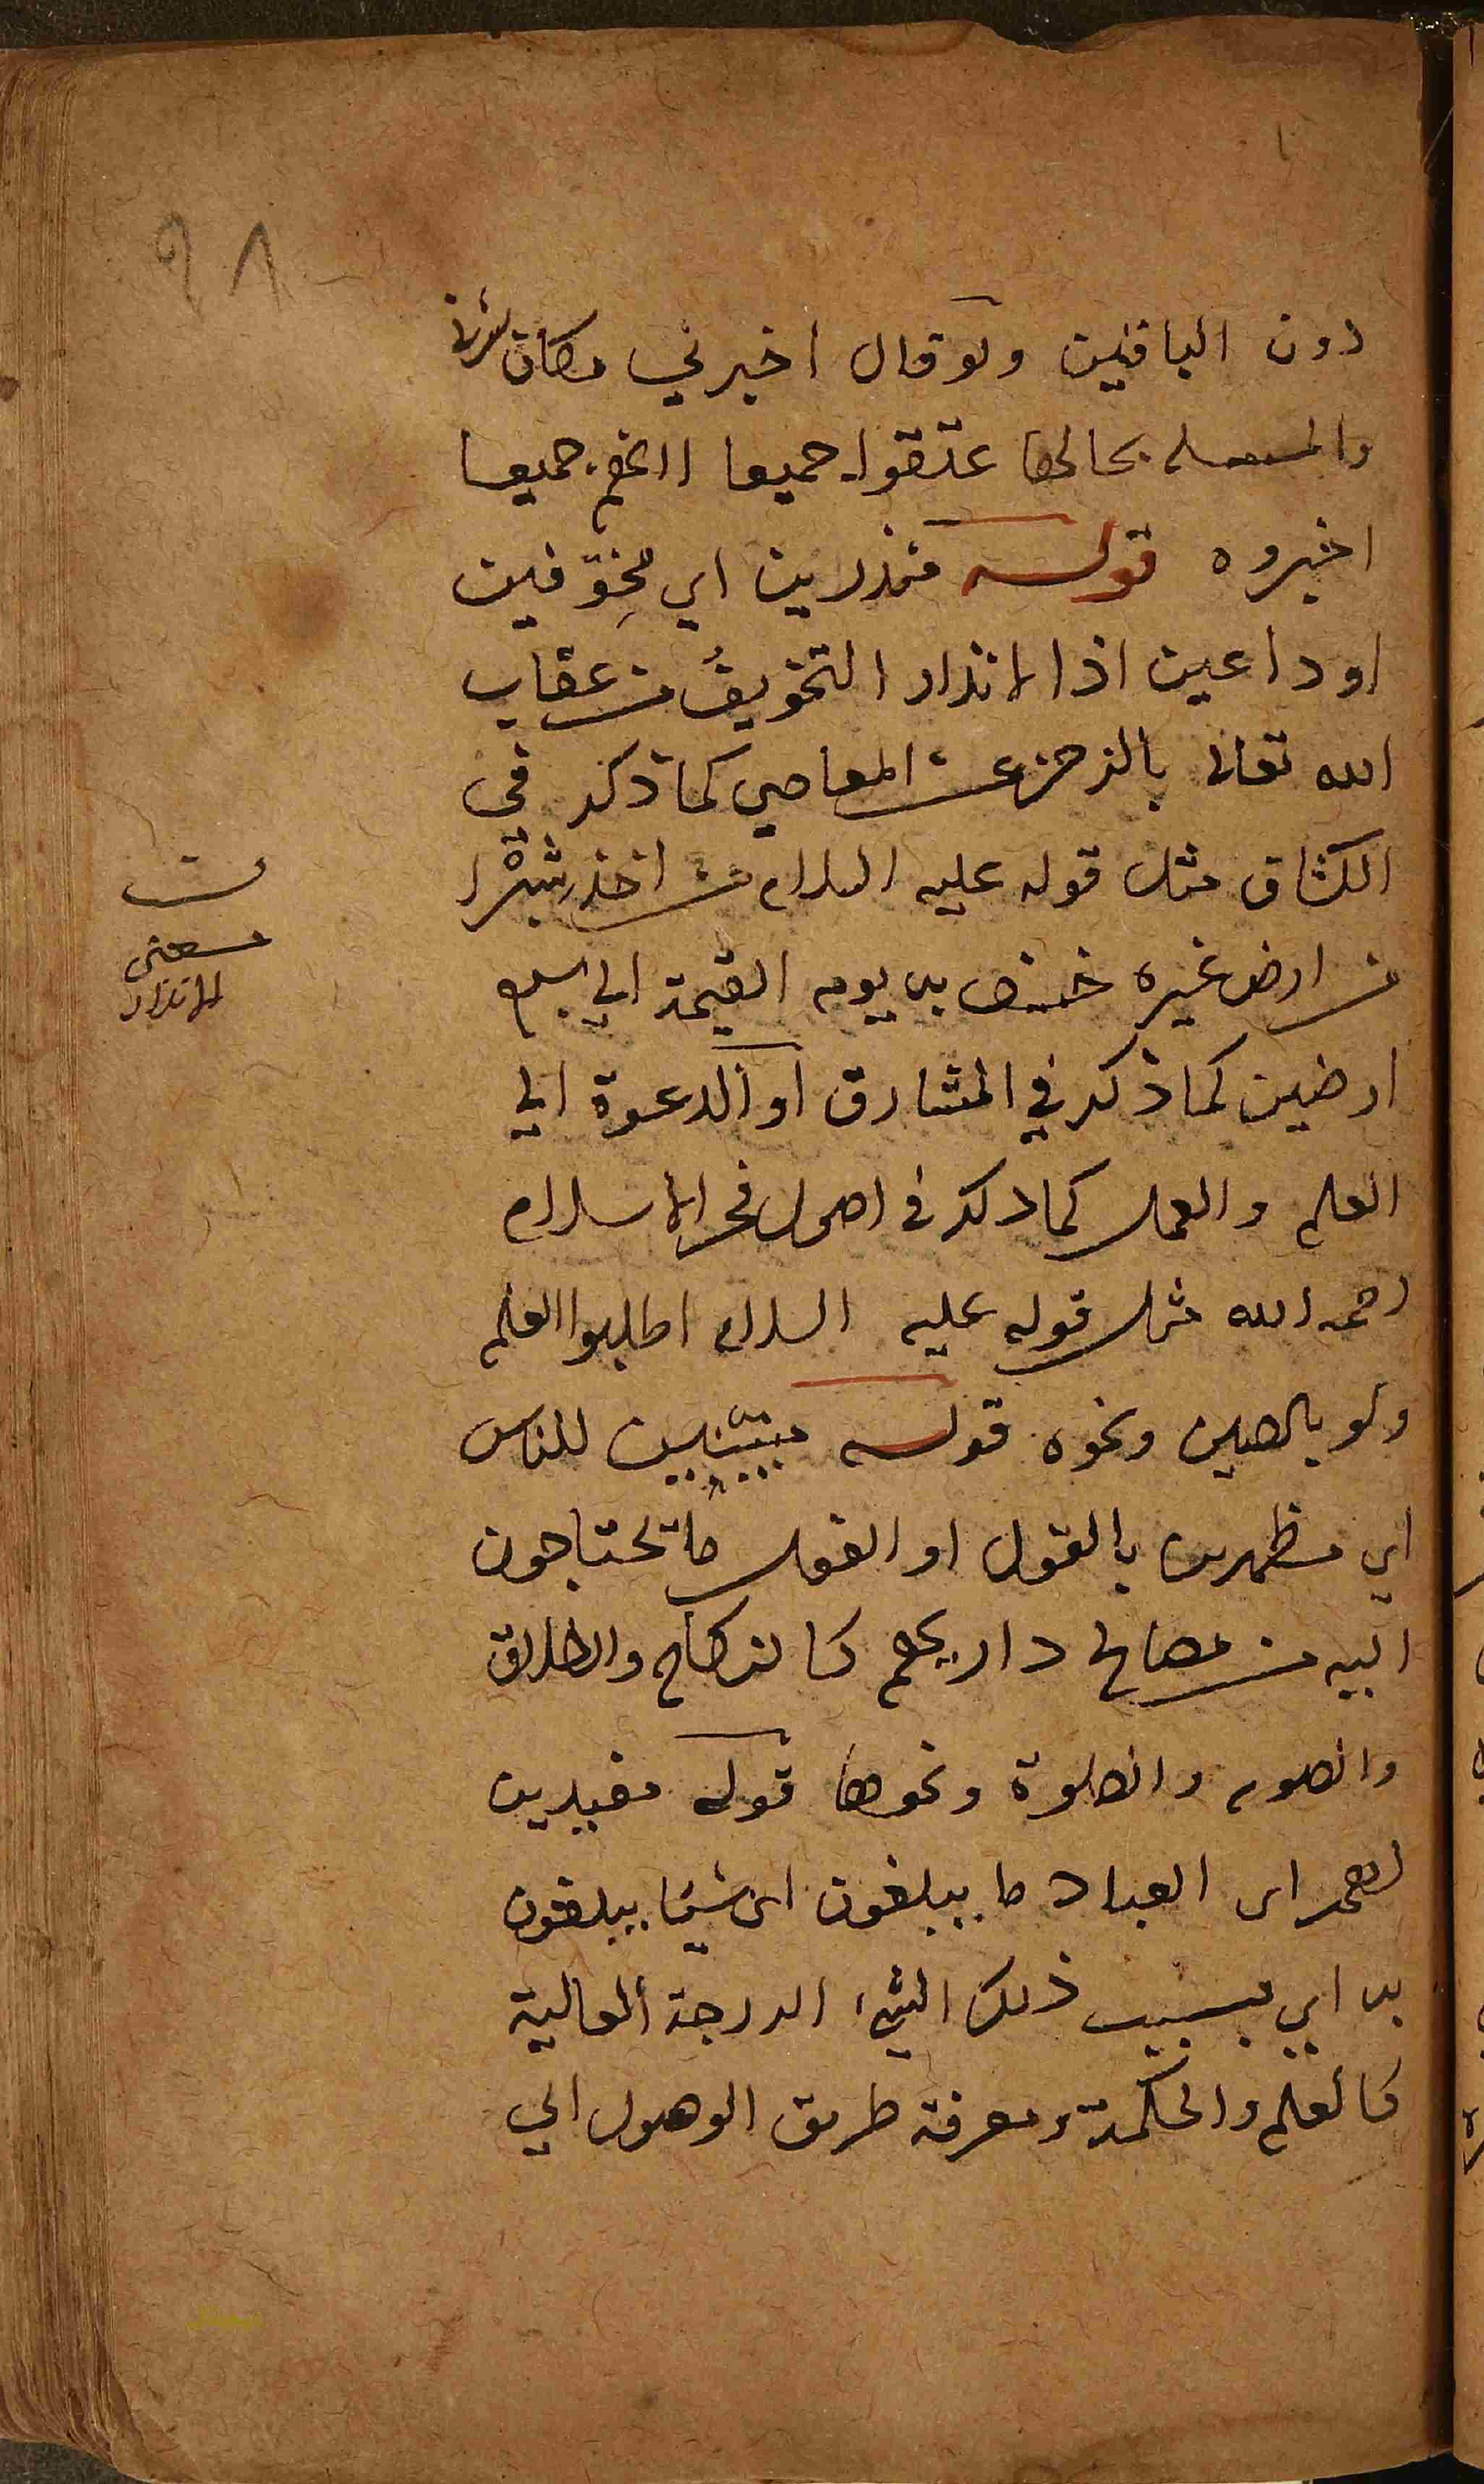 ٩٨
دون الباقين ولو قال اخبرني مكان بشرنا
والمسئلة بحالها عتقوا جميعا لانهم جميعا
اخبروه قوله منذرين اي مخوّفين
او داعين اذا لانذار التخويفُ من عقاب
الله تعالى بالزجر عن المعاصي كما ذكر في
الكشاف مثل قوله عليه السلام من اخذ شبْرا
من ارض غيره خسف به يوم القيمة الي سبع
ارضين كما ذكر في المشارق او الدعوة الي
العلم والعمل كما ذكر في اصول فخر الاسلام
رحمه الله مثل قوله عليه السلام اطلبوا العلم
ولو بالصين ونحوه قوله مبيّنين للناس
اي مظهرين بالقول او الفعل ما تحتاجون
اليه من مصالح داريهم كالنكاح والطلاق
والصوم والصلوة ونحوها قوله مفيدين
لهم اي العباد ما يبلغون اي شيئا يبلغون
به اي بسبب ذلك الشيء الدرجة العالية
كالعلم والحكمة ومعرفة طريق الوصول الي
معنى
الانذار